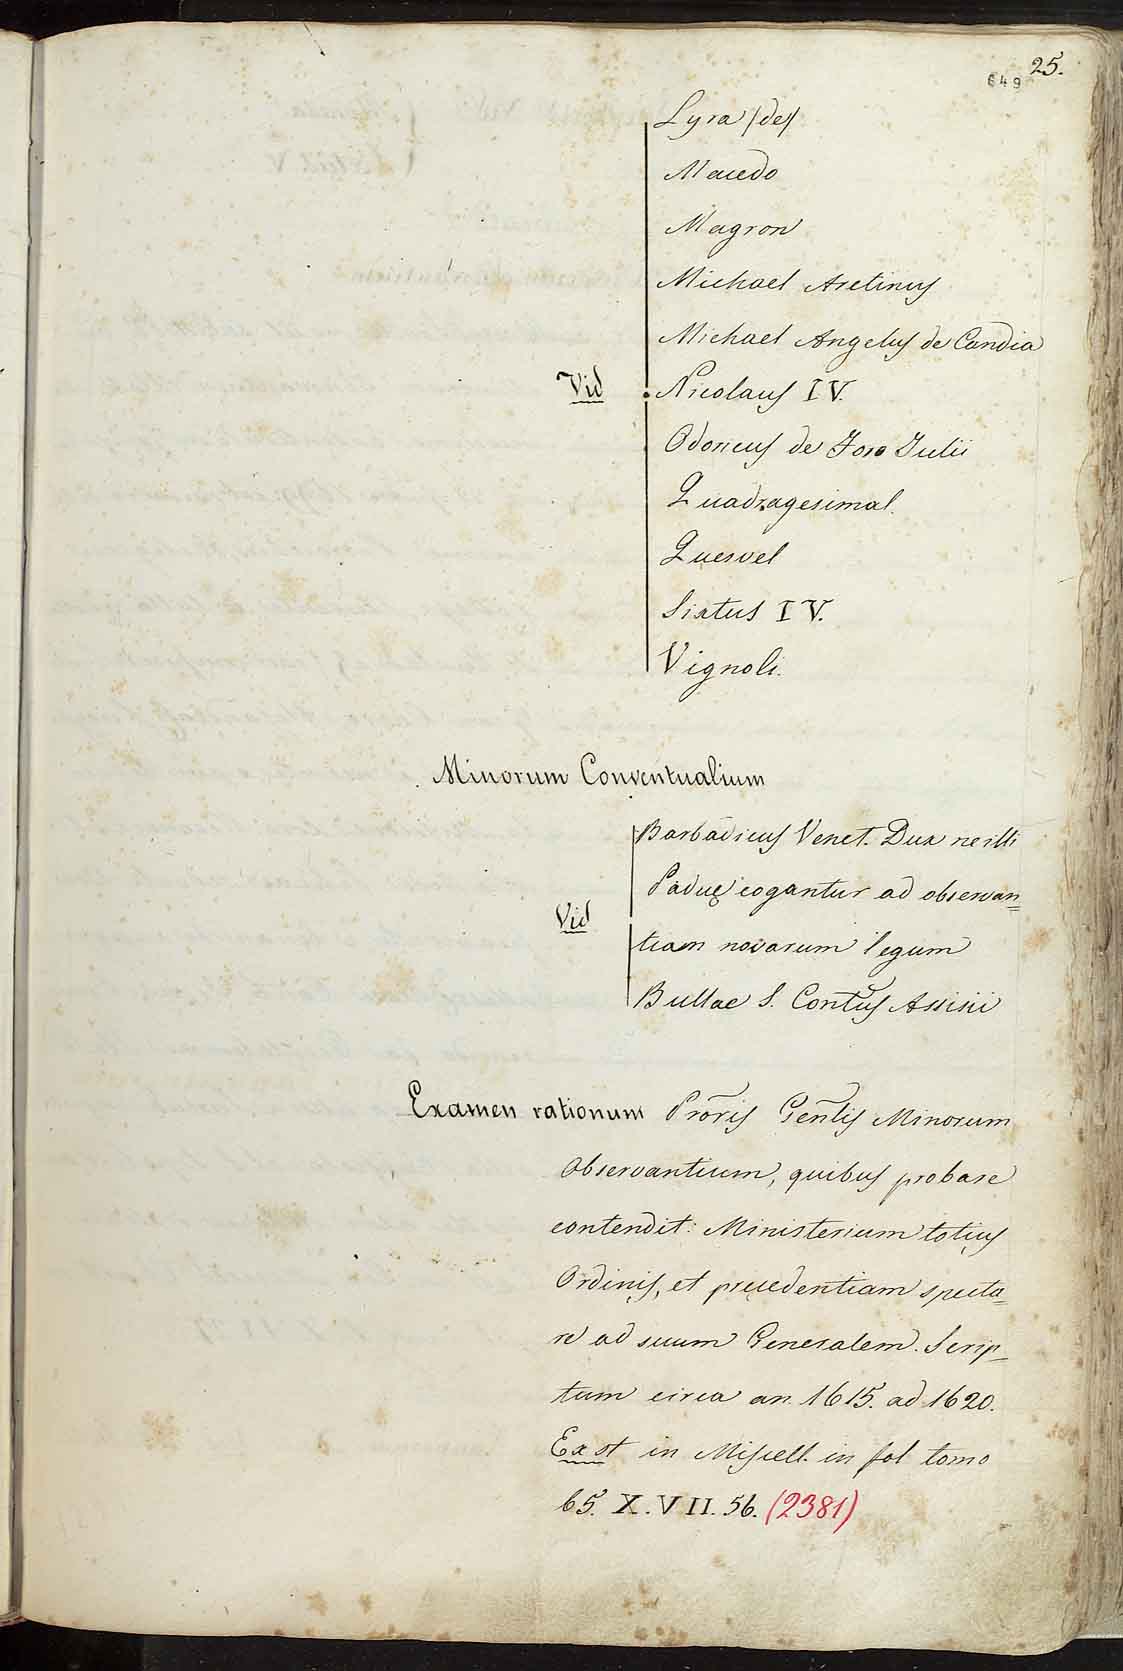 25.
649
Lyra /de/
Macedo
Magron
Michael Aretinus
Michael Angelus de Candia
Vid Nicolaus IV.
Odoricus de Foro Julii
Quadragesimal.
Quesvel
Sixtus IV.
Vignoli.
Minorum Conventualium
Barbadicus Venet. Dux ne illi
Paduę cogantur ad observan=
Vid
tiam novarum legum
Bullae S. Contũs Assisii
Examen rationum Prõris Gen̄lis Minorum
Observantium, quibus probare
contendit: Ministerium totius
Ordinis, et pręcedentiam specta=
re ad suum Generalem. Scrip_
tum circa an. 1615. ad 1620.
Exst in Miscell. in fol tomo
65. X. VII. 56. (2381)